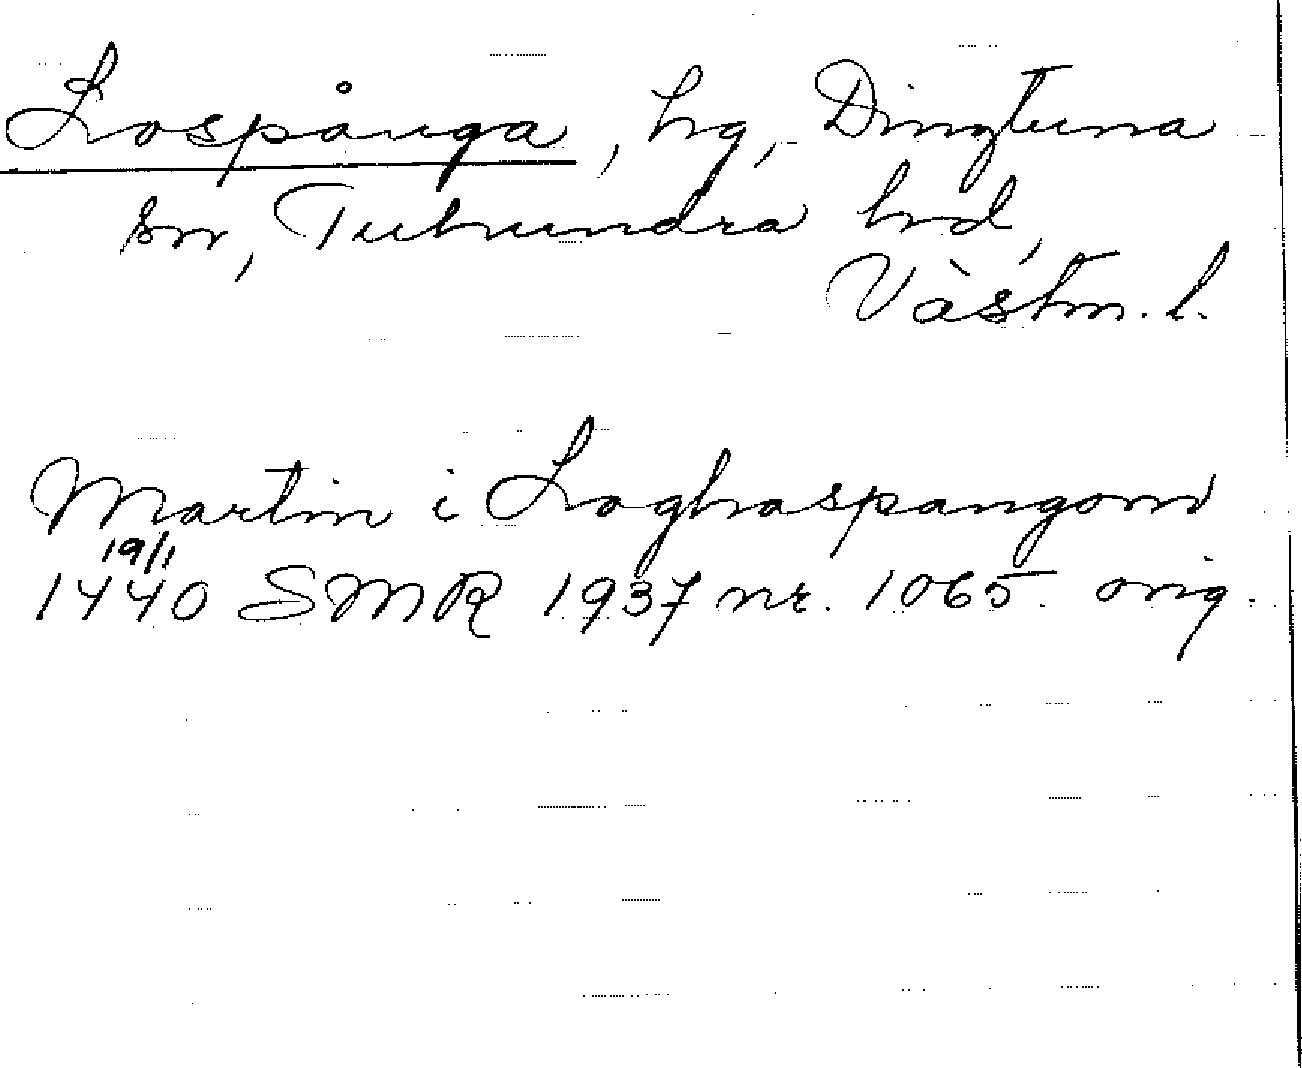 Lospånga, hg, Dingtuna
sn, Tuhundra hd,
Västm. l.
Martin i Laghaspangom
19/1
1440 SMR 1937 nr. 1065. orig.